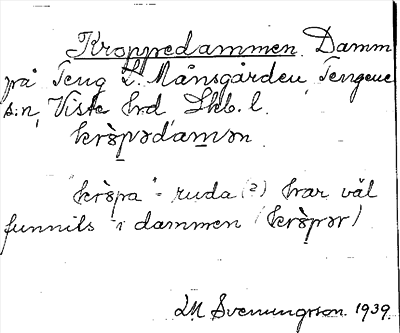 Kroppedammen. Damm
på Teng L. Månsgården, Tengene
s:n, Viste hrd, Skb. l.
krò̱pədam̱ən
"krò̱pa" - ruda (?) har väl
funnits i dammen (krò̱pər)
LM Svenungsson. 1939.